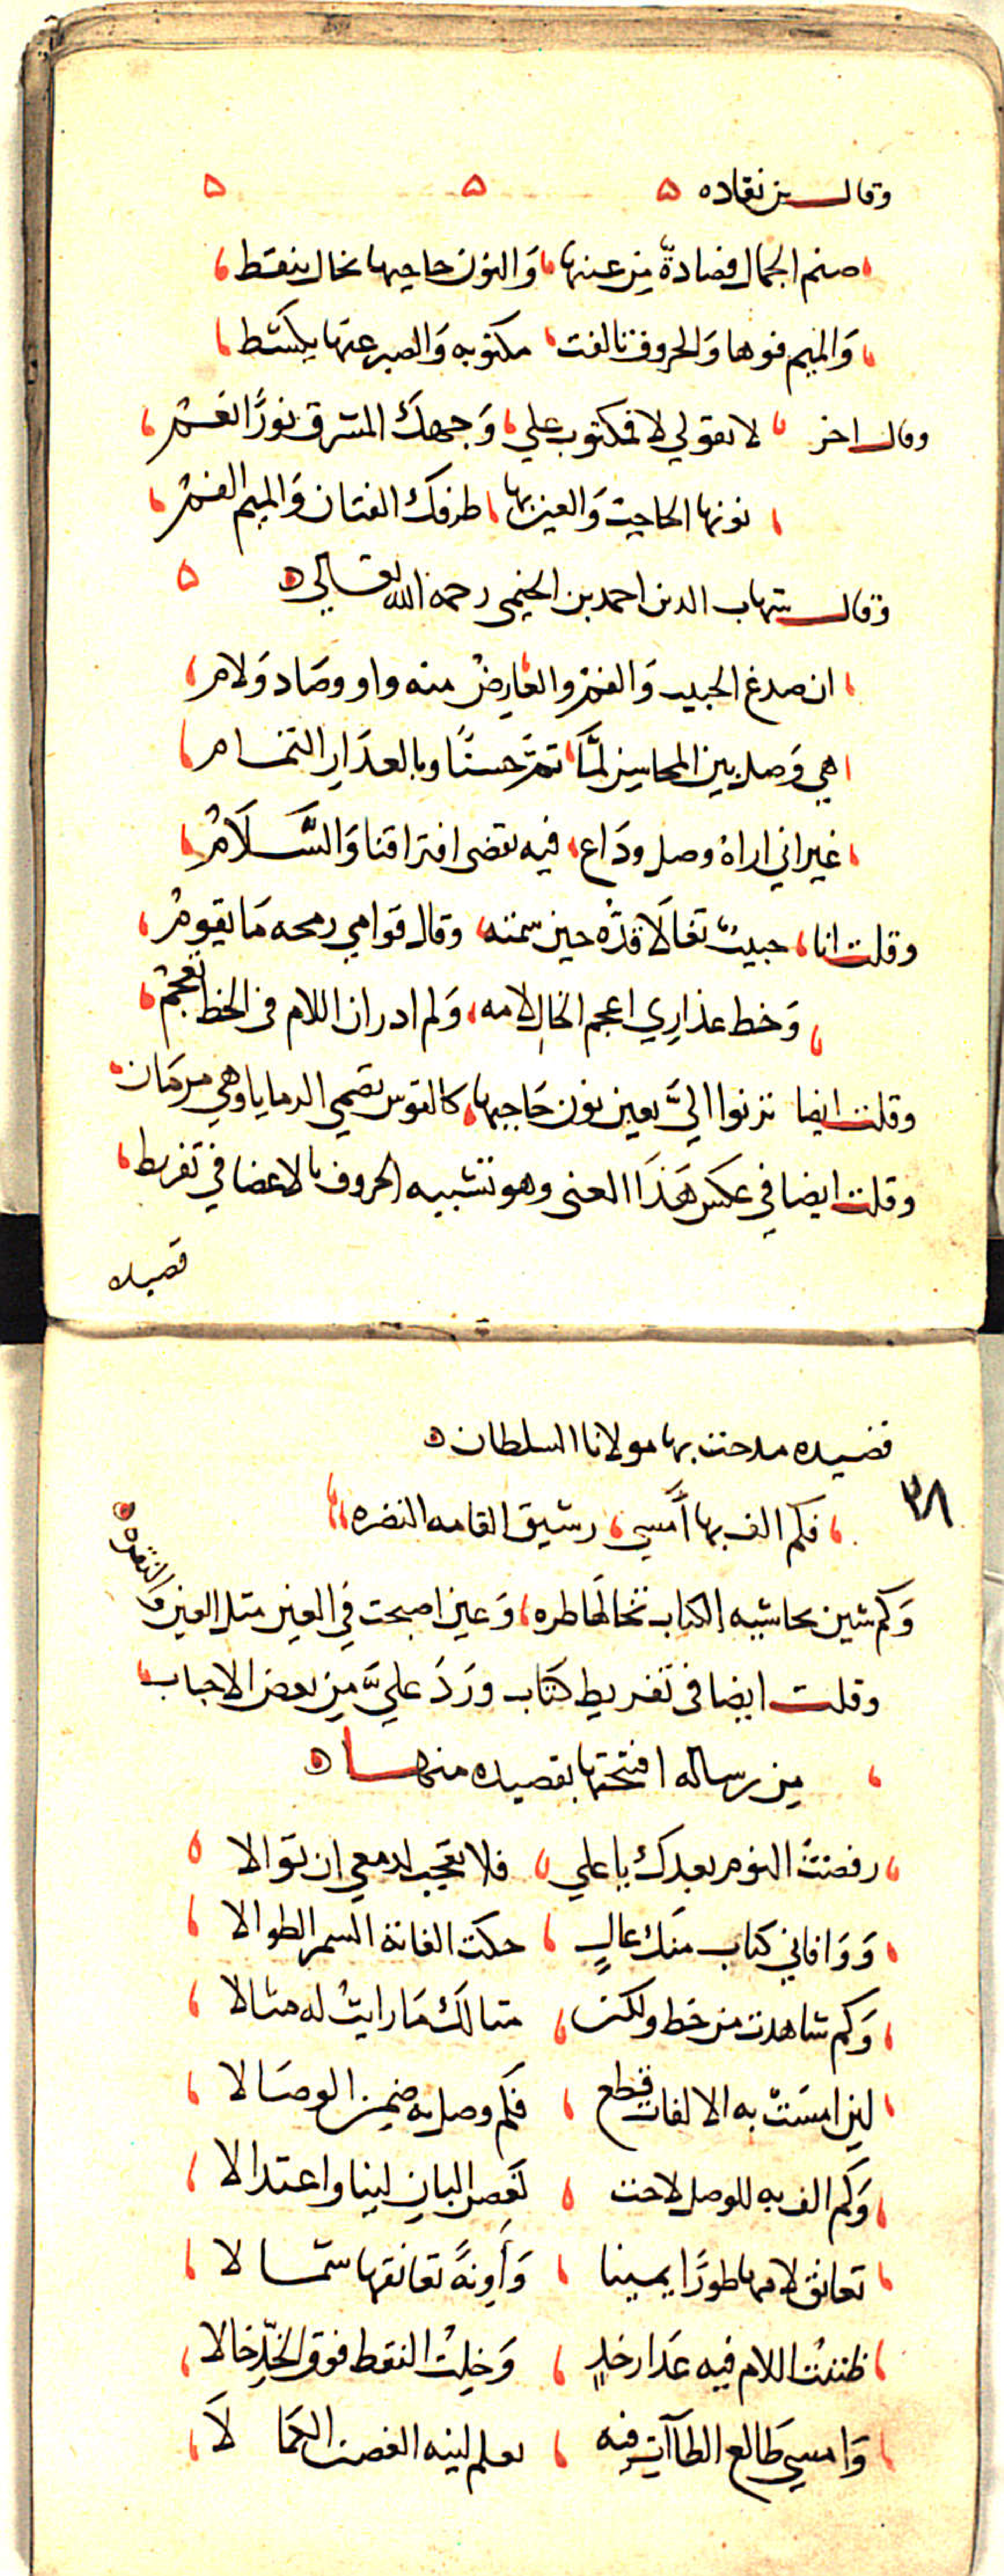 وقال بن نقاده ه ه ه
صنم الجمال فصادة من عينها والنون حاجبها بخال ينقط
والميم فوها والحروف تالفت مكتوبه والصبر عنها يكشط
وقال اخر لا تقولي لا فمكتوب على وجهك المشرق نورًا نعم
نونها الحاجب والعين بها طرفك الفتان والميم الفم
وقال شهاب الدين احمد بن الخيمي رحمه الله تعالى ه
ان صدغ الحبيب والفم والعارض منه واو وصاد ولام
هي وصل بين المحاسن لما تم حسنًا وبالعذار التمام
غير اني اراه وصل وداع فيه تقضى افتراقنا والسلام
وقلت انا حبيب تغالا قده حين سمته وقال قوامي رمحه ما يقوم
وخط عذاري اعجم الخال لامه ولم ادر ان اللام في الخط تعجم
وقلت ايضا ترنوا اليّ بعين نون حاجبها كالقوس تصمي الرمايا وهي مرنان
وقلت ايضا في عكس هذا المعنى وهو تشبيه الحروف بالاعضا في تقريط
قصيده
قصيده مدحت بها مولانا السلطان ه
٢٨
فكم الف بها أمسى رشيق القامه النضره
وكم شين بحاشيه الكتاب تخالها طره وعين اصبحت في العين مثل العين والنقره
وقلت ايضا في تقريط كتاب ورد عليّ من بعض الاحباب
من رساله افتتحتها بقصيده منها ه
رفضت النوم بعدك يا علي فلا تعجب لدمعي ان توالا
ووافاني كتاب منك عالٍ حكت الفاته السمر الطوالا
وكم شاهدت من خط ولكن مثالك ما رايت له مثالا
لين امست به الالفات قطع فكم وصل به ضمن الوصالا
وكم الف به للوصل لاحت كغصن البان لينا واعتدالا
تعانق لامها طورًا يمينا وأونةً تعانقها شمالا
ظننت اللام فيه عذار خدٍ وخلت النقط فوق الخدّ خالا
وامسى طالع الطاآت فيه يعلم لينه الغصن الكمالا